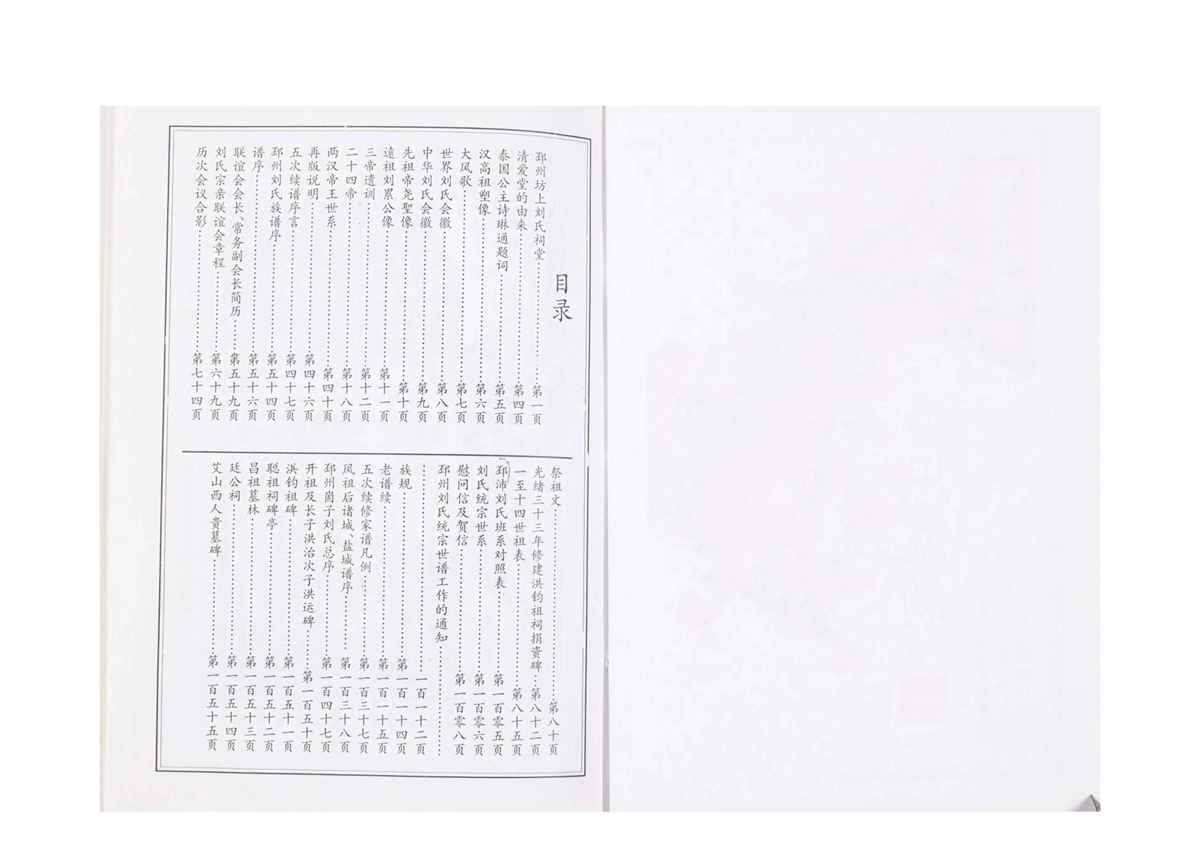 目录
邳州坊上刘氏祠堂……第一页
清爱堂的由来……第四页
泰国公主诗琳通题词……第五页
汉高祖塑像……第六页
大风歌……第七页
世界刘氏会徽……第八页
中华刘氏会徽……第九页
先祖帝尧聖像……第十页
遠祖刘累公像……第十一页
三帝遗训……第十二页
二十四帝……第十八页
两汉帝王世系……第四十页
再版说明……第四十六页
五次续谱序言……第四十七页
邳州刘氏族谱序……第五十四页
谱序……第五十六页
联谊会会长、常务副会长简历……第五十九页
刘氏宗亲联谊会章程……第六十九页
历次会议合影……第七十四页
祭祖文……第八十页
光绪三十三年修建洪钧祖祠捐资碑……第八十二页
一至十四世祖表……第八十五页
邳沛刘氏班系对照表……第一百零五页
刘氏统宗世系……第一百零六页
慰问信及贺信……第一百零八页
邳州刘氏统宗世谱工作的通知……
……一百一十二页
族规……第一百一十四页
老谱续……第一百一十五页
五次续修家谱凡例……第一百三十七页
凤祖后诸城、盐城谱序……第一百三十八页
邳州茴子刘氏总序……第一百四十七页
开祖及长子洪治次子洪运碑……第一百五十页
洪钧祖碑……第一百五十一页
聪祖祠碑亭……第一百五十二页
昌祖墓林……第一百五十三页
廷公祠……第一百五十四页
艾山西人贵墓碑……第一百五十五页